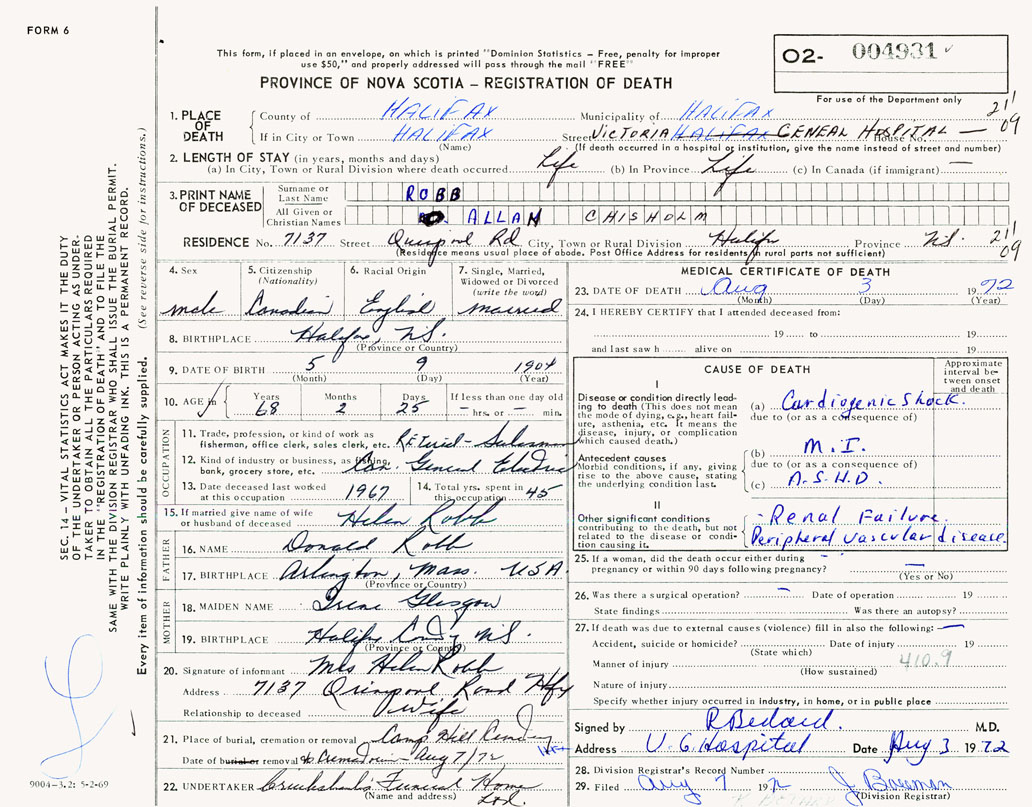 FORM 6
This form, if placed in an envelope, on which is printed "Dominion Statistics – Free, penalty for improper
use $50," and properly addressed will pass through the mail "FREE"
02- 004931
PROVINCE OF NOVA SCOTIA – REGISTRATION OF DEATH
For use of the Department only
211
09
1. PLACE OF DEATH
County of HALIFAX Municipality of HALIFAX
If in City or Town HALIFAX Street VICTORIA HALIFAX GENEAL HOSPITAL — House No.
(Name) (If death occurred in a hospital or institution, give the name instead of street and number)
2. LENGTH OF STAY (in years, months and days)
(a) In City, Town or Rural Division where death occurred Life (b) In Province Life (c) In Canada (if immigrant) —
3. PRINT NAME OF DECEASED
Surname or Last Name ROBB
All Given or Christian Names ALLAN CHISHOLM
RESIDENCE No. 7137 Street Quinpool Rd City, Town or Rural Division Halifax Province N.S.
211
09
(Residence means usual place of abode. Post Office Address for residents in rural parts not sufficient)
4. Sex
male
5. Citizenship (Nationality)
Canadian
6. Racial Origin
English
7. Single, Married, Widowed or Divorced (write the word)
married
8. BIRTHPLACE Halifax, N.S.
(Province or Country)
9. DATE OF BIRTH 5 9 1904
(Month) (Day) (Year)
10. AGE in Years Months Days If less than one day old
68 2 25 – hrs. or – min.
OCCUPATION
11. Trade, profession, or kind of work as fisherman, office clerk, sales clerk, etc. Retired - Salesman
12. Kind of industry or business, as fishing, bank, grocery store, etc. Can. General Electric
13. Date deceased last worked at this occupation 1967
14. Total yrs. spent in this occupation 45
15. If married give name of wife or husband of deceased Helen Robb
FATHER
16. NAME Donald Robb
17. BIRTHPLACE Arlington, Mass. USA
(Province or Country)
MOTHER
18. MAIDEN NAME Irene Glasgow
19. BIRTHPLACE Halifax County N.S.
(Province or Country)
20. Signature of informant Mrs Helen Robb
Address 7137 Quinpool Road Hfx
Relationship to deceased Wife
21. Place of burial, cremation or removal Camp Hill Cemetery
Date of burial or removal to Crematorium - Aug 7/72
22. UNDERTAKER Cruikshank's Funeral Home Ltd.
(Name and address)
MEDICAL CERTIFICATE OF DEATH
23. DATE OF DEATH Aug 3 1972
(Month) (Day) (Year)
24. I HEREBY CERTIFY that I attended deceased from:
19 to 19
and last saw h alive on 19
CAUSE OF DEATH
Approximate interval between onset and death
I
Disease or condition directly leading to death (This does not mean the mode of dying, e.g., heart failure, asthenia, etc. It means the disease, injury, or complication which caused death.)
(a) Cardiogenic Shock.
due to (or as a consequence of)
Antecedent causes
Morbid conditions, if any, giving rise to the above cause, stating the underlying condition last.
(b) M.I.
due to (or as a consequence of)
(c) A.S.H.D.
II
Other significant conditions
contributing to the death, but not related to the disease or condition causing it.
- Renal Failure.
Peripheral vascular disease.
25. If a woman, did the death occur either during pregnancy or within 90 days following pregnancy? —
(Yes or No)
26. Was there a surgical operation? — Date of operation 19
State findings Was there an autopsy?
27. If death was due to external causes (violence) fill in also the following: —
Accident, suicide or homicide? Date of injury 19
(State which)
410.9
Manner of injury
(How sustained)
Nature of injury
Specify whether injury occurred in industry, in home, or in public place
Signed by R Bedard. M.D.
Address V.G. Hospital Date Aug 3 1972
28. Division Registrar's Record Number
29. Filed Aug 7 1972
(Division Registrar)
SEC. 14 – VITAL STATISTICS ACT MAKES IT THE DUTY
OF THE UNDERTAKER OR PERSON ACTING AS UNDER-
TAKER TO OBTAIN ALL THE PARTICULARS REQUIRED
IN THE "REGISTRATION OF DEATH" AND TO FILE THE
SAME WITH THE DIVISION REGISTRAR WHO SHALL ISSUE THE BURIAL PERMIT.
WRITE PLAINLY WITH UNFADING INK. THIS IS A PERMANENT RECORD.
Every item of information should be carefully supplied. (See reverse side for instructions.)
9004-3.2: 5-2-69